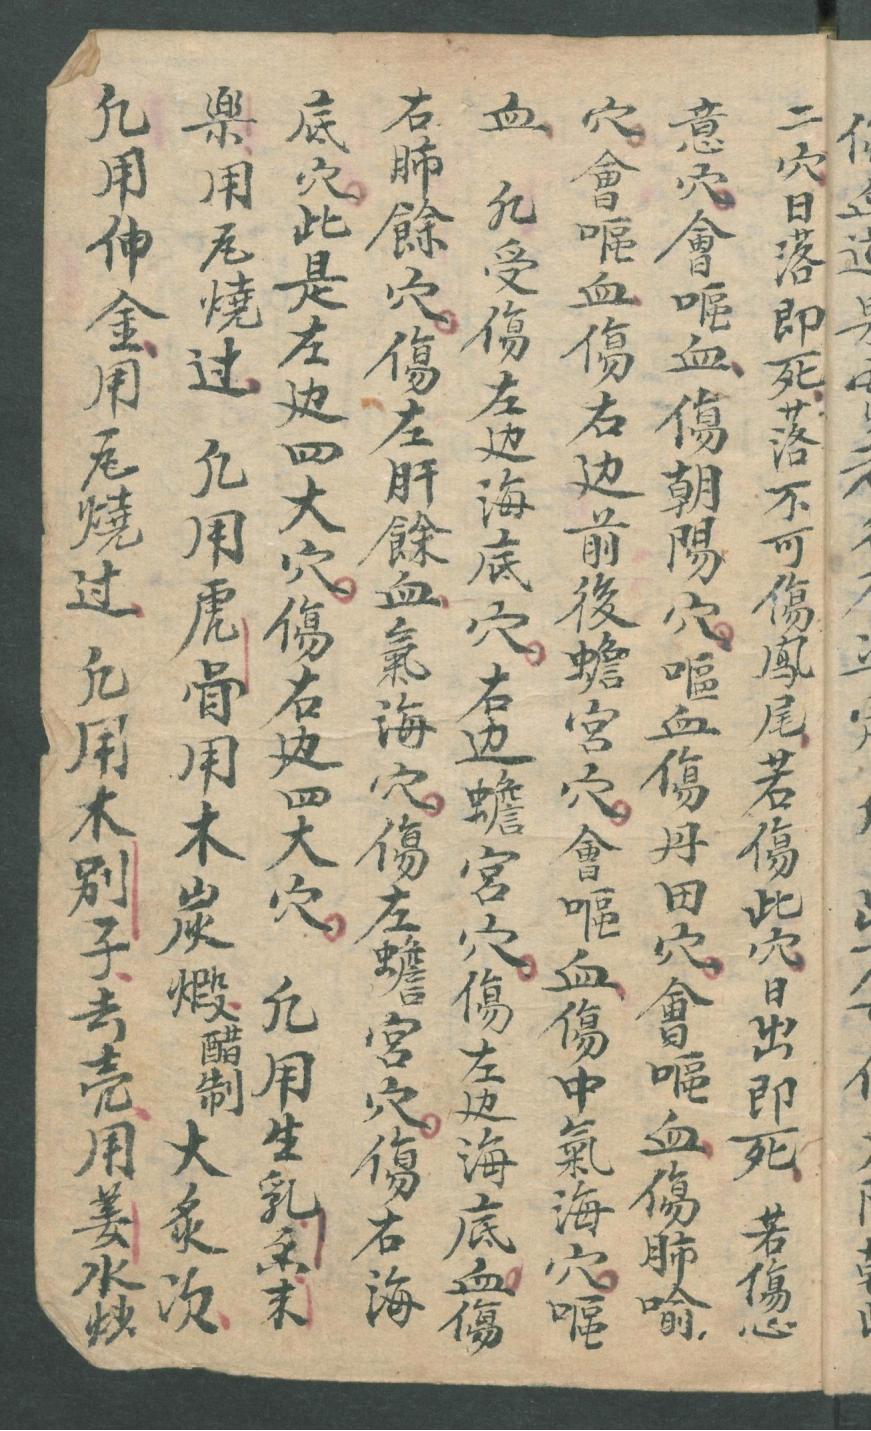 二穴日落即死落不可傷鳳尾若傷此穴日出即死　若傷心
意穴會嘔血傷朝陽穴嘔血傷丹田穴會嘔血傷肺喻
穴會嘔血傷右边前後蟾宮穴會嘔血傷中氣海穴嘔
血　凡受傷左边海底穴右边蟾宮穴傷左边海底血傷
右肺餘穴傷左肝餘血氣海穴傷左蟾宮穴傷右海
底穴此是左边四大穴傷右边四大穴　凡用生乳香末
藥用瓦燒过　凡用虎骨用木炭煅醋制大炙次
凡用伸金用瓦燒过　凡用木别子去壳用姜水